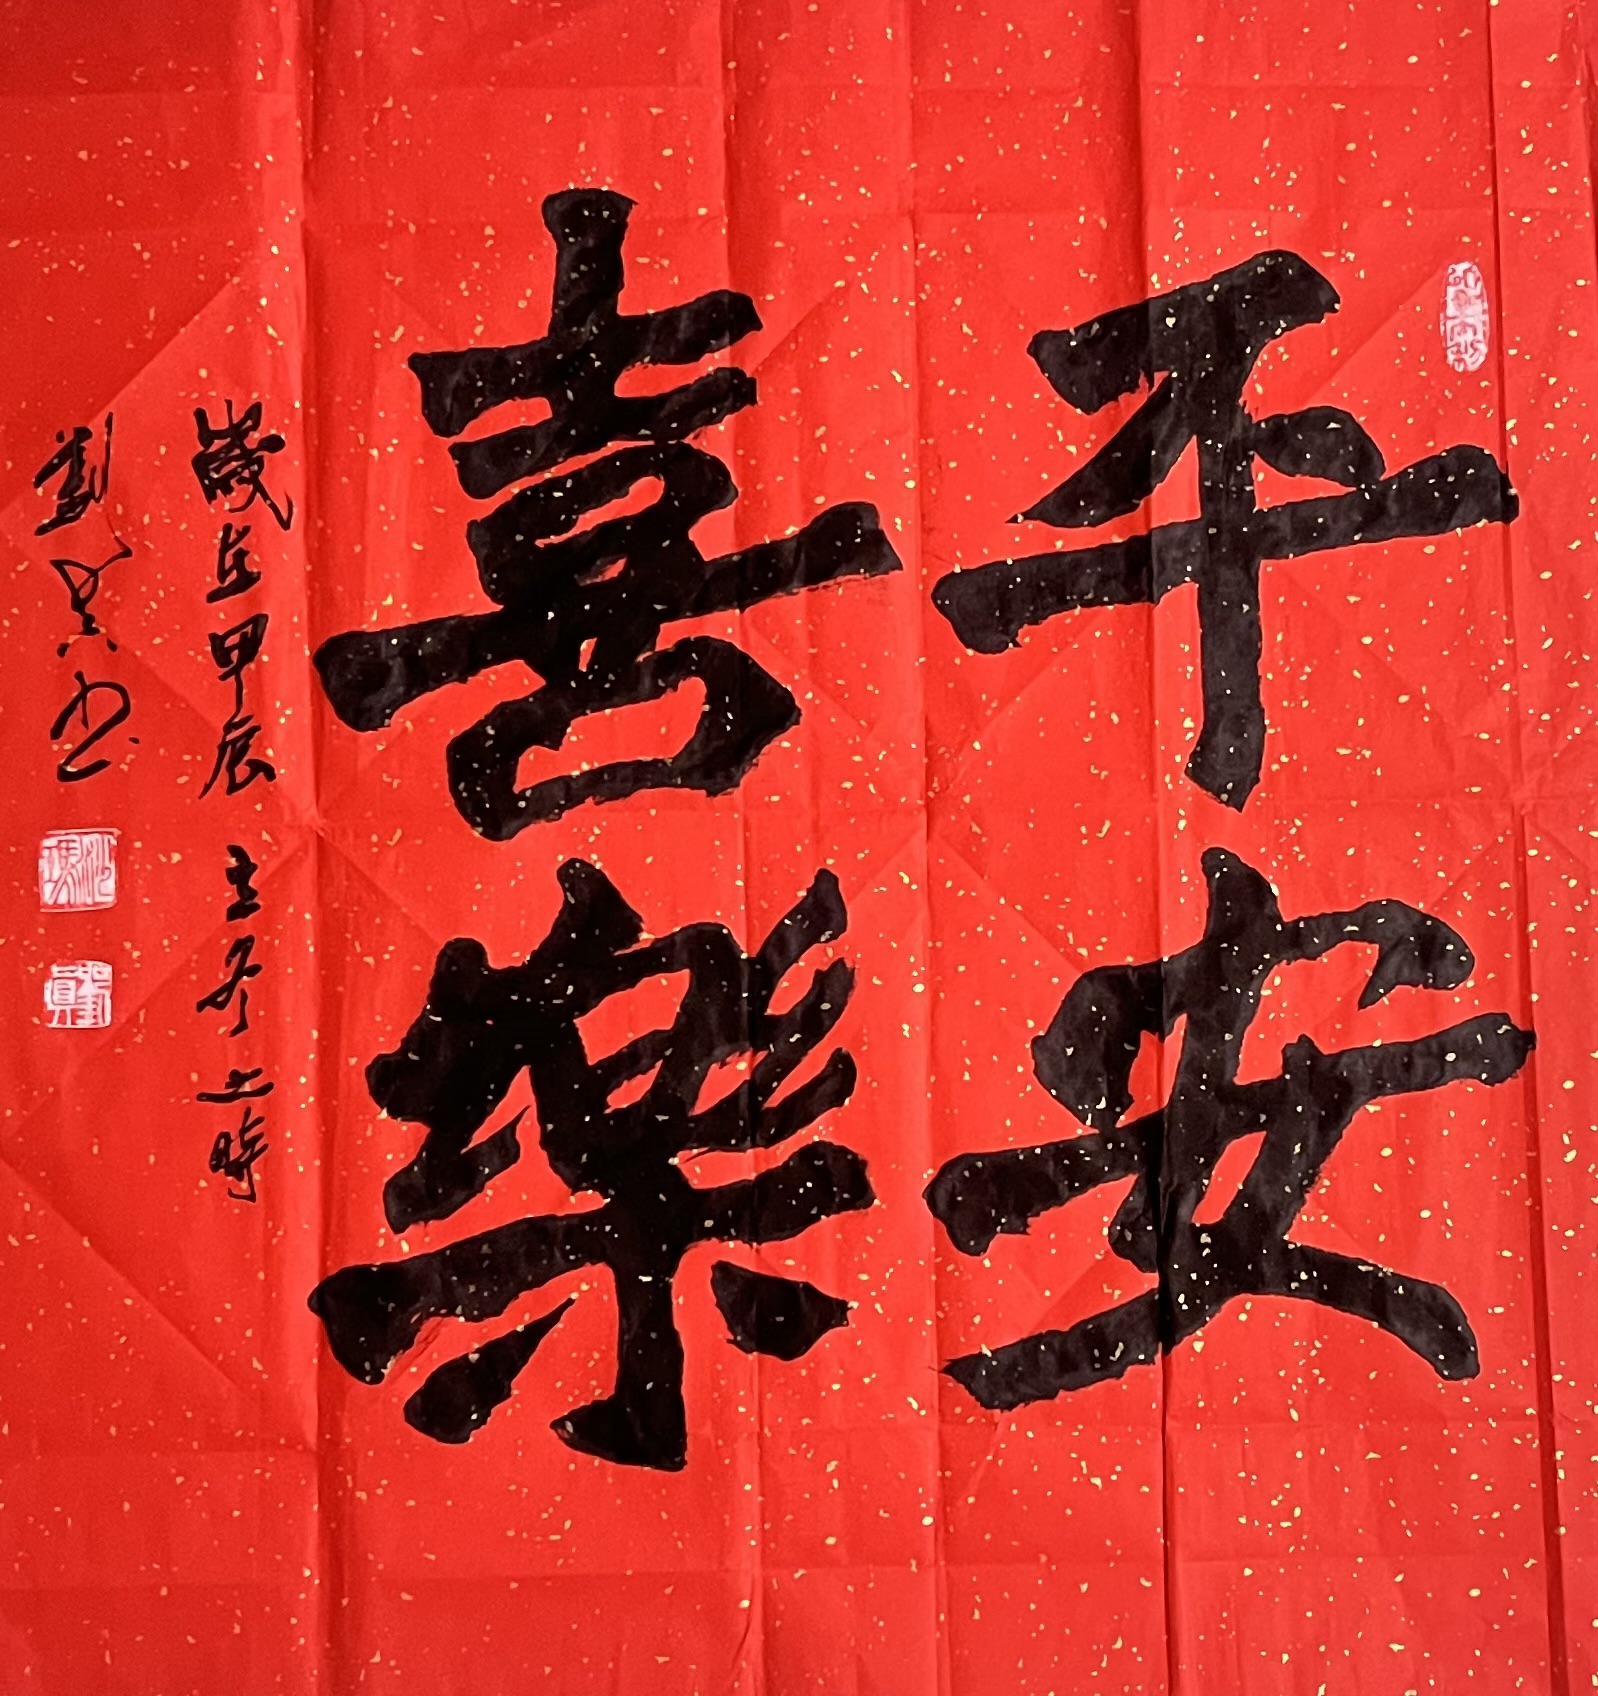 平安
喜樂
歲在甲辰立冬之時
劉
書